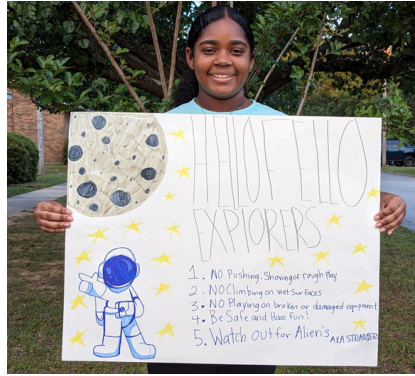 HELLOF ELLO
EXPLORERS
1. NO Pushing-Shoving of rough Play
2. NO Climbing on wet Surfaces
3. NO Playing on broken or damaged equipment
4. Be Safe and Have fun!
5. Watch Out for Alien's AKA STRANGERS